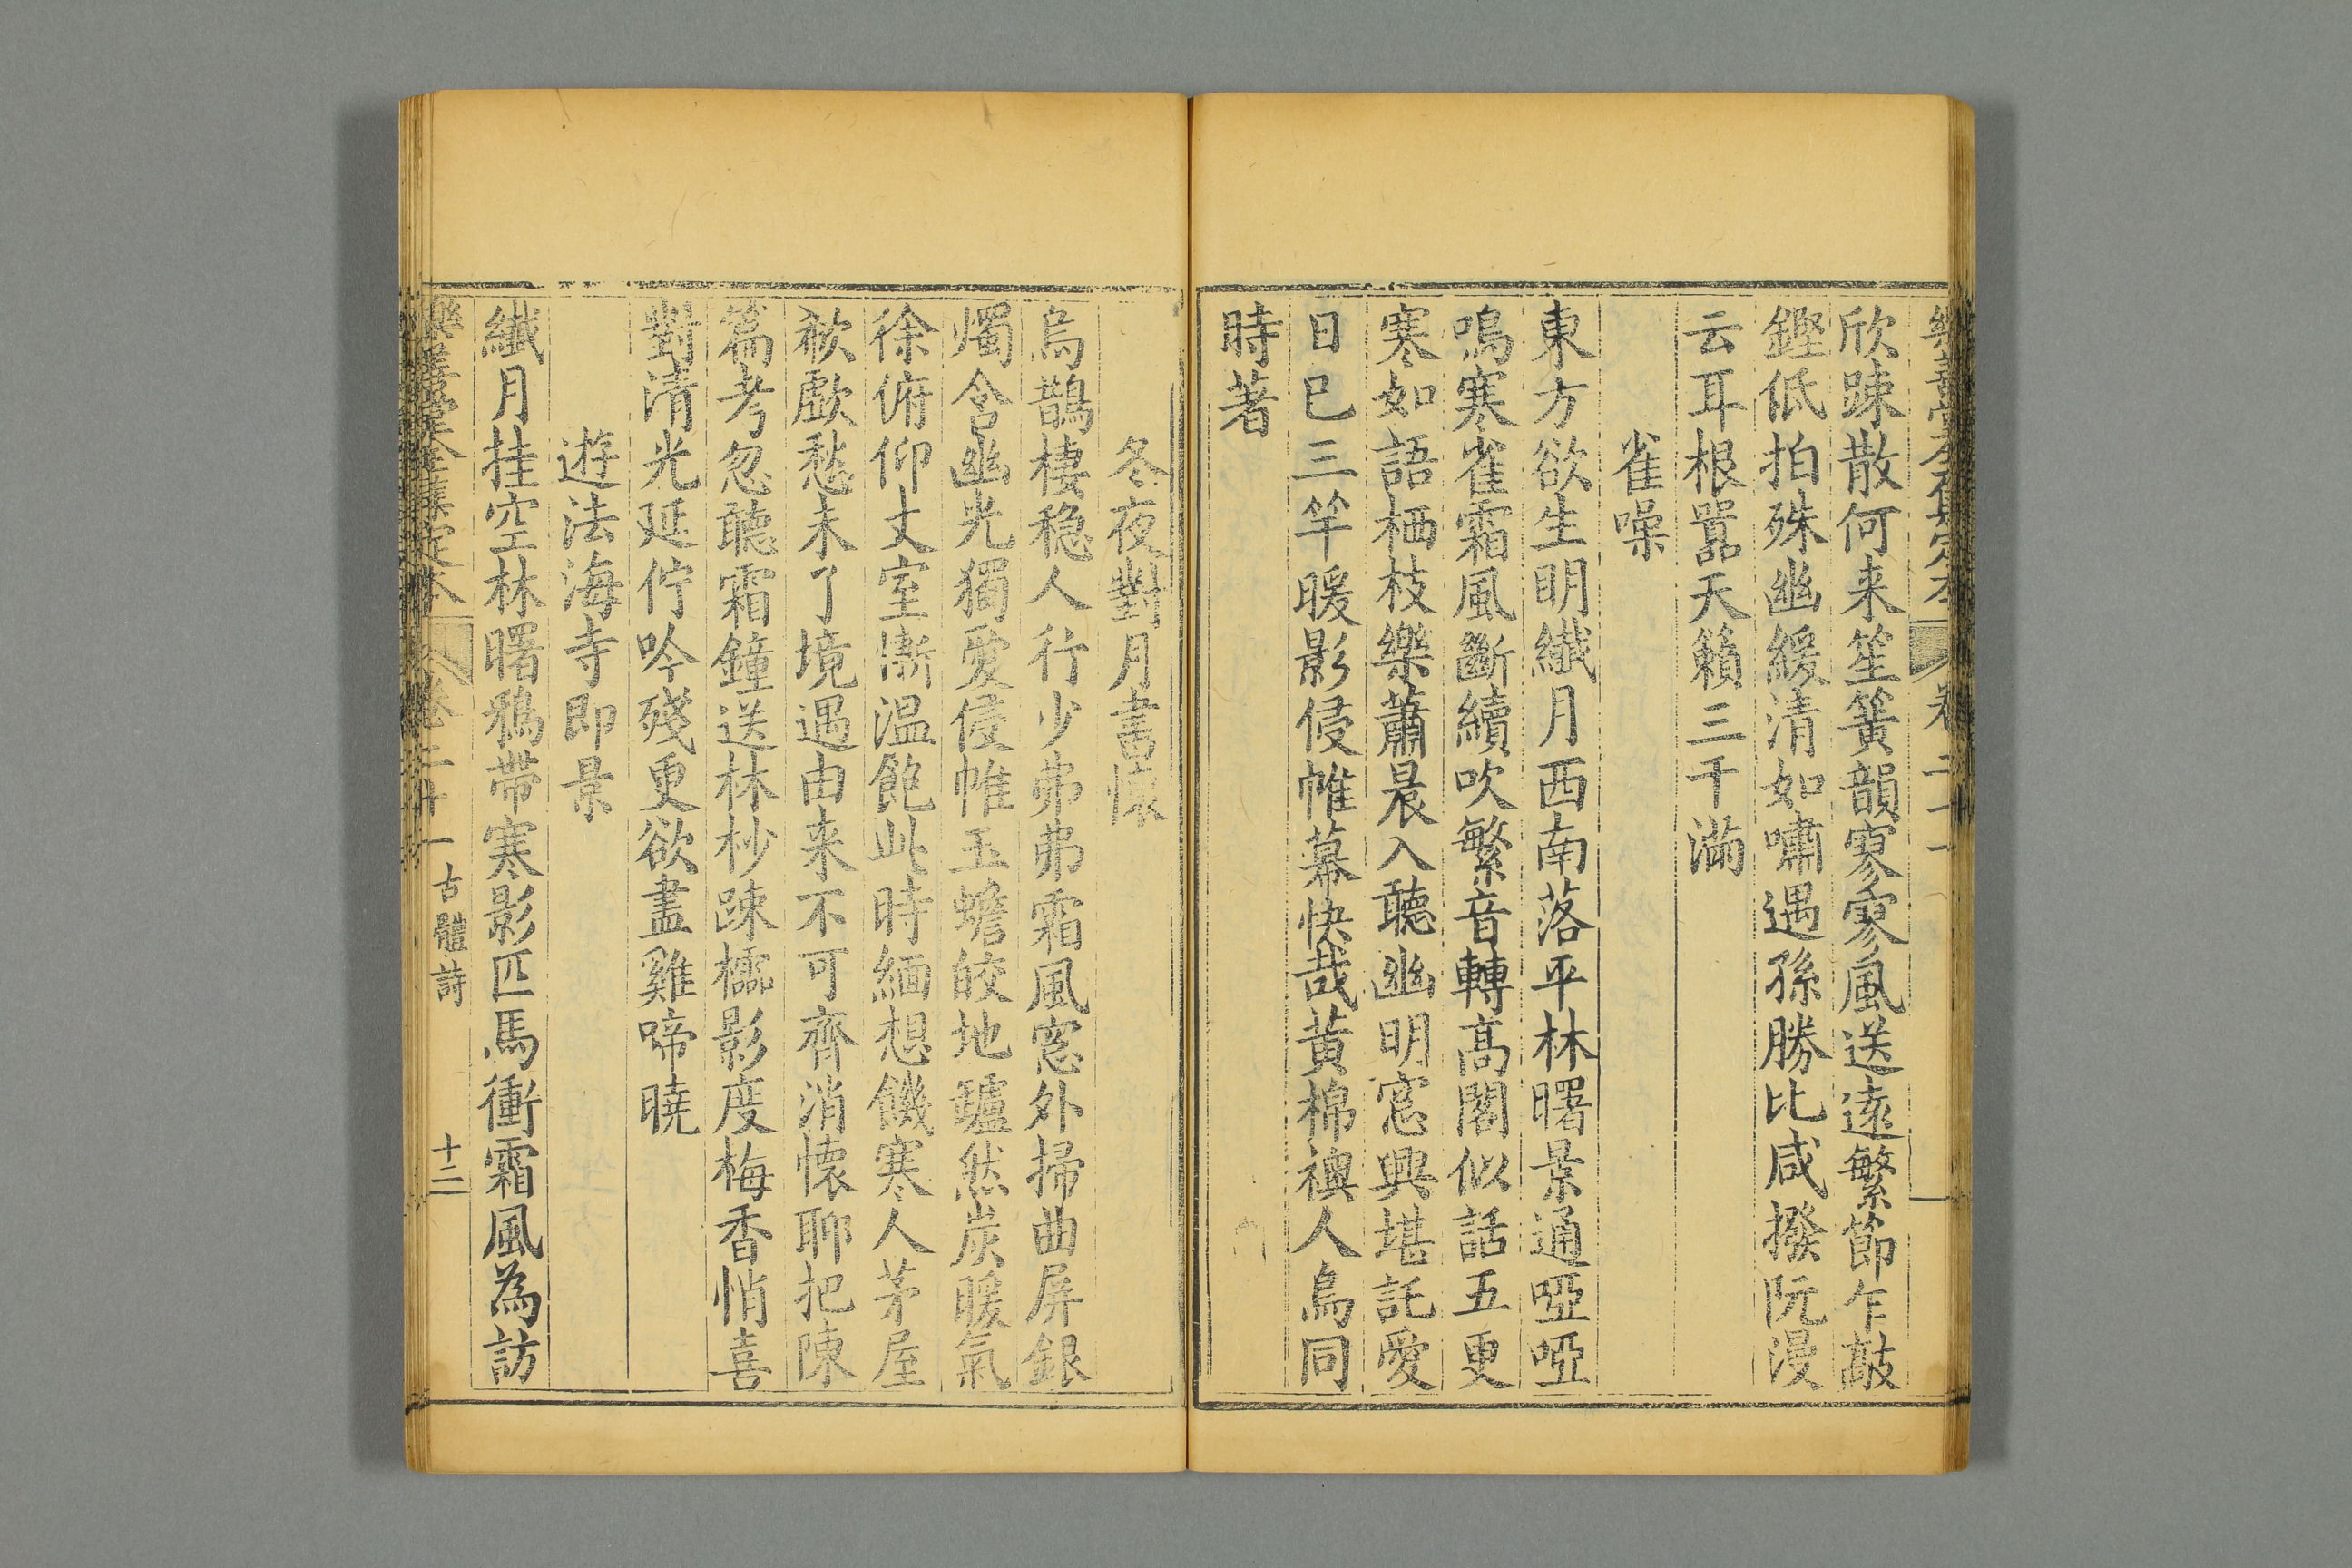 樂善堂全集定本 卷二十一
欣踈散何来笙簧韻寥寥風送遠繁節乍敲
鏗低拍殊幽緩清如嘯遇孫勝比咸撥阮漫
云耳根囂天籟三千滿
雀噪
東方欲生明纖月西南落平林曙景通啞啞
鳴寒雀霜風斷續吹繁音轉高閣似話五更
寒如語栖枝樂蕭晨入聽幽明窓興堪託愛
日已三竿暖影侵帷幕快哉黄棉襖人鳥同
時著
冬夜對月書懷
烏鵲棲穏人行少弗弗霜風窓外掃曲屏銀
燭含幽光獨愛侵帷玉蟾皎地鑪然炭暖氣
徐俯仰丈室漸温飽此時緬想饑寒人茅屋
欷歔愁未了境遇由来不可齊消懷聊把陳
篇考忽聽霜鐘送林杪踈櫺影度梅香悄喜
對清光延佇吟殘更欲盡雞啼曉
遊法海寺即景
纖月挂空林曙鴉帶寒影匹馬衝霜風為訪
樂善堂全集定本 卷二十一 古體詩 十二